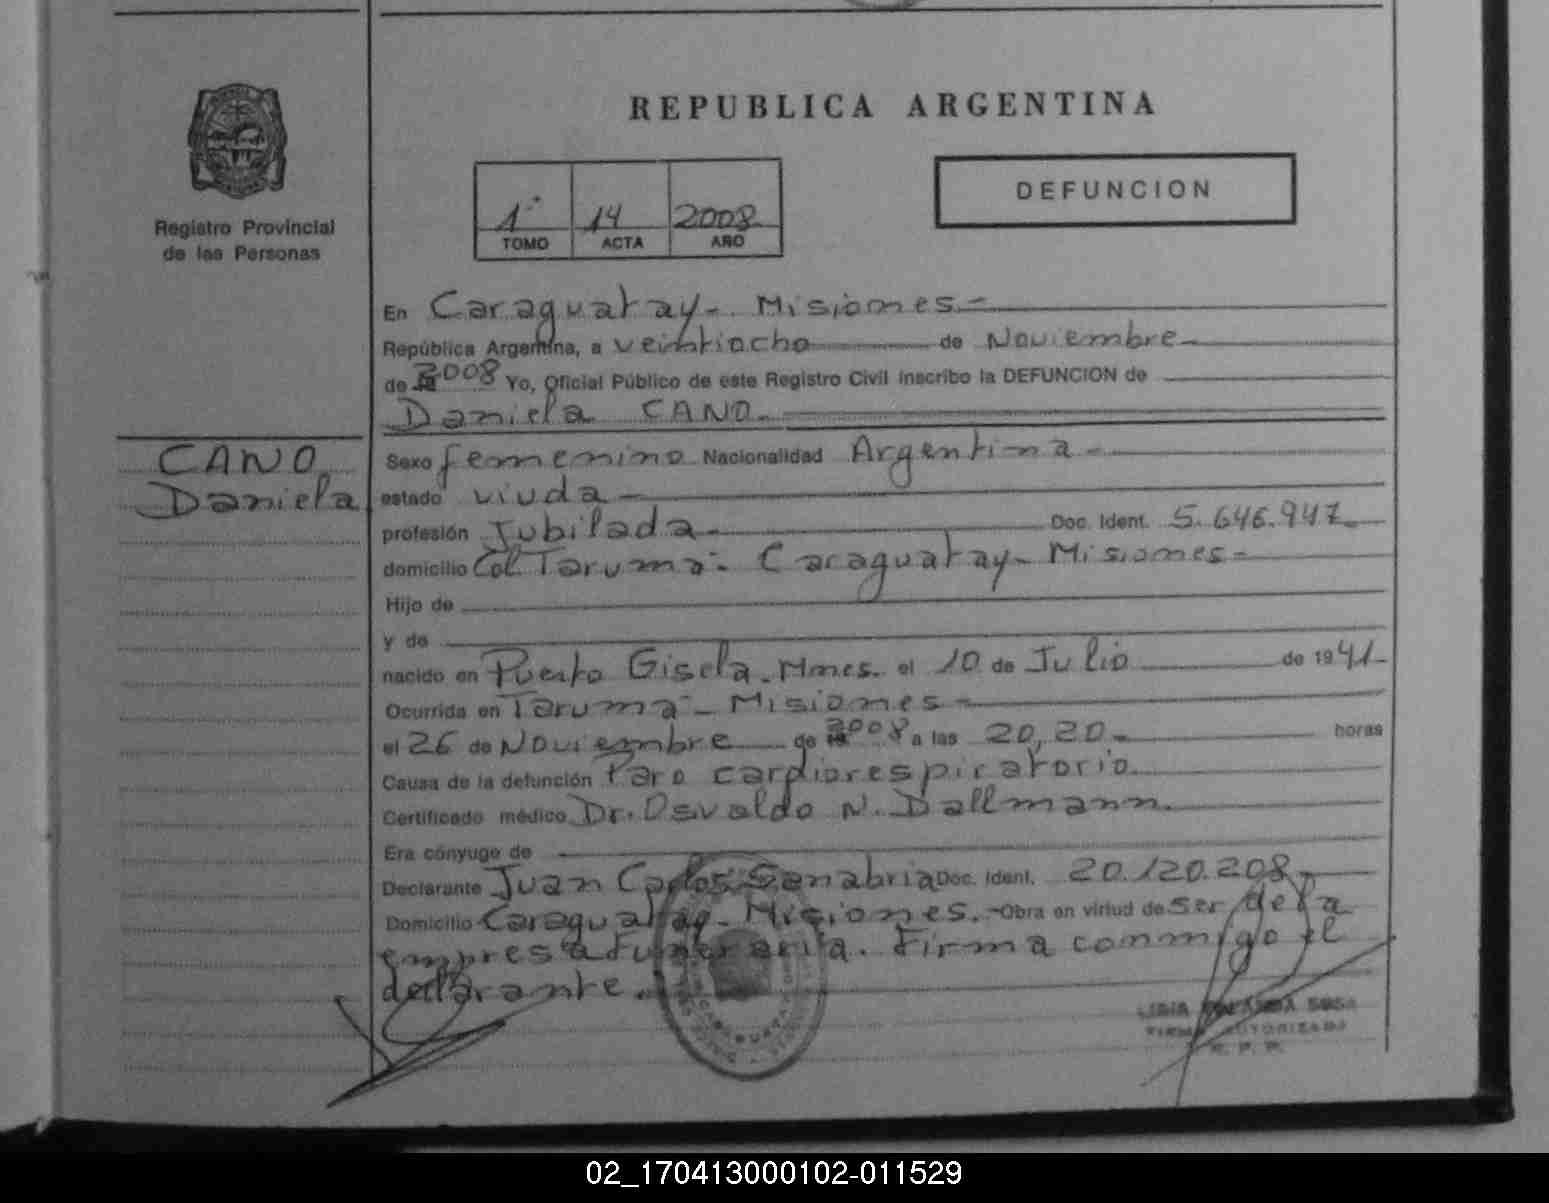 REPUBLICA ARGENTINA
Registro Provincial
de las Personas
1° 14 2008
TOMO ACTA AÑO
DEFUNCION
CANO
Daniela
En Caraguatay - Misiones -
República Argentina, a veintiocho de Noviembre -
de 2008 Yo, Oficial Público de este Registro Civil inscribo la DEFUNCION de
Daniela CANO -
Sexo femenino Nacionalidad Argentina -
estado viuda -
profesión Jubilada - Doc. Ident. 5.646.947 -
domicilio Col. Taruma - Caraguatay - Misiones -
Hijo de
y de
nacido en Puerto Gisela - Mnes. el 10 de Julio de 1941 -
Ocurrida en Taruma - Misiones -
el 26 de Noviembre de 2008 a las 20,20 - horas
Causa de la defunción Paro cardiorespiratorio
Certificado médico Dr. Osvaldo N. Dallmann.
Era cónyuge de
Declarante Juan Carlos Sanabria Doc. Ident. 20.120.208 -
Domicilio Caraguatay - Misiones. - Obra en virtud de ser de la
empresa funeraria. Firma conmigo el
declarante.
SOSA
FIRMA AUTORIZADA
R. P. P.
02_170413000102-011529